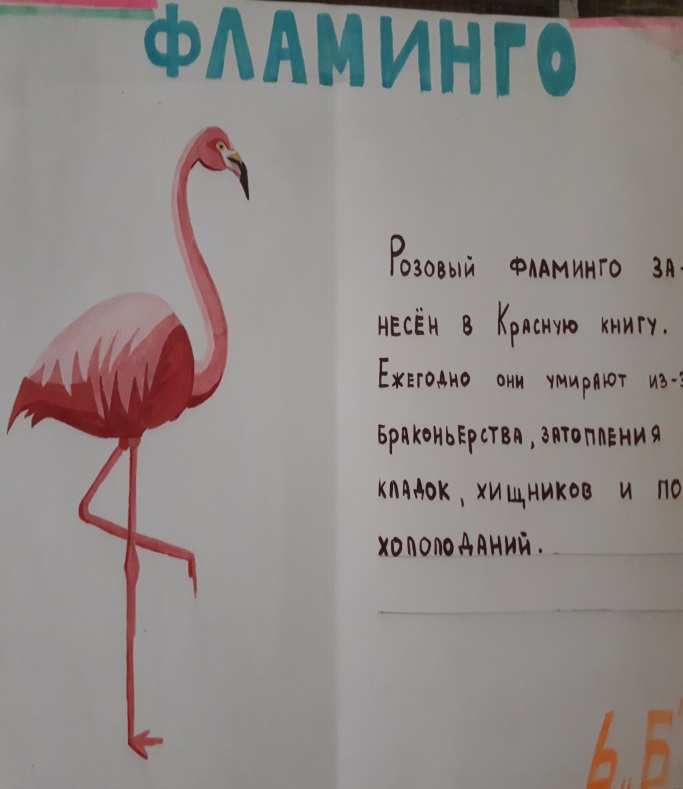 ФЛАМИНГО
Розовый фламинго за-
несён в Красную книгу.
Ежегодно они умирают из-з
браконьерства, затопления
кладок, хищников и по
холоданий.
6 „Б"